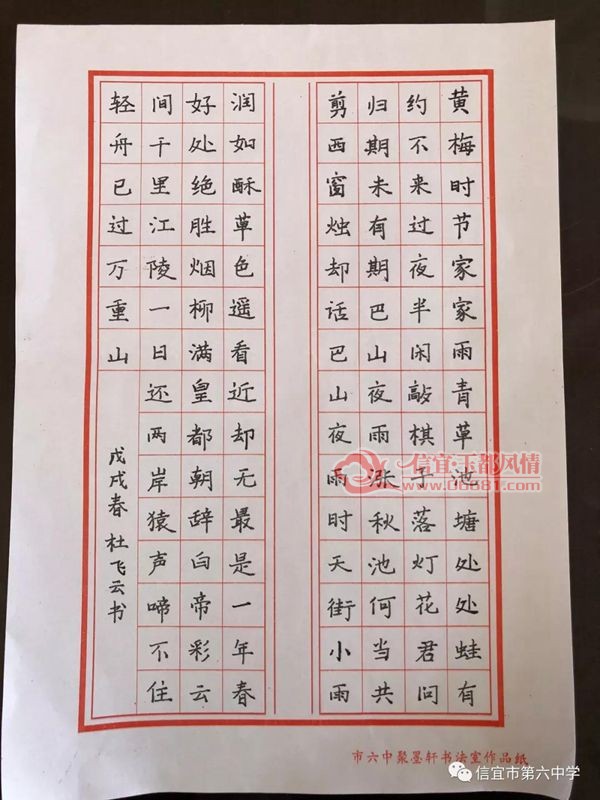 黄梅时节家家雨青草池塘处处蛙有
约不来过夜半闲敲棋子落灯花君问
归期未有期巴山夜雨涨秋池何当共
剪西窗烛却话巴山夜雨时天街小雨
润如酥草色遥看近却无最是一年春
好处绝胜烟柳满皇都朝辞白帝彩云
间千里江陵一日还两岸猿声啼不住
轻舟已过万重山
戊戌春 杜飞云书
市六中聚墨轩书法室作品纸
信宜玉都风情
www.06681.com
信宜市第六中学